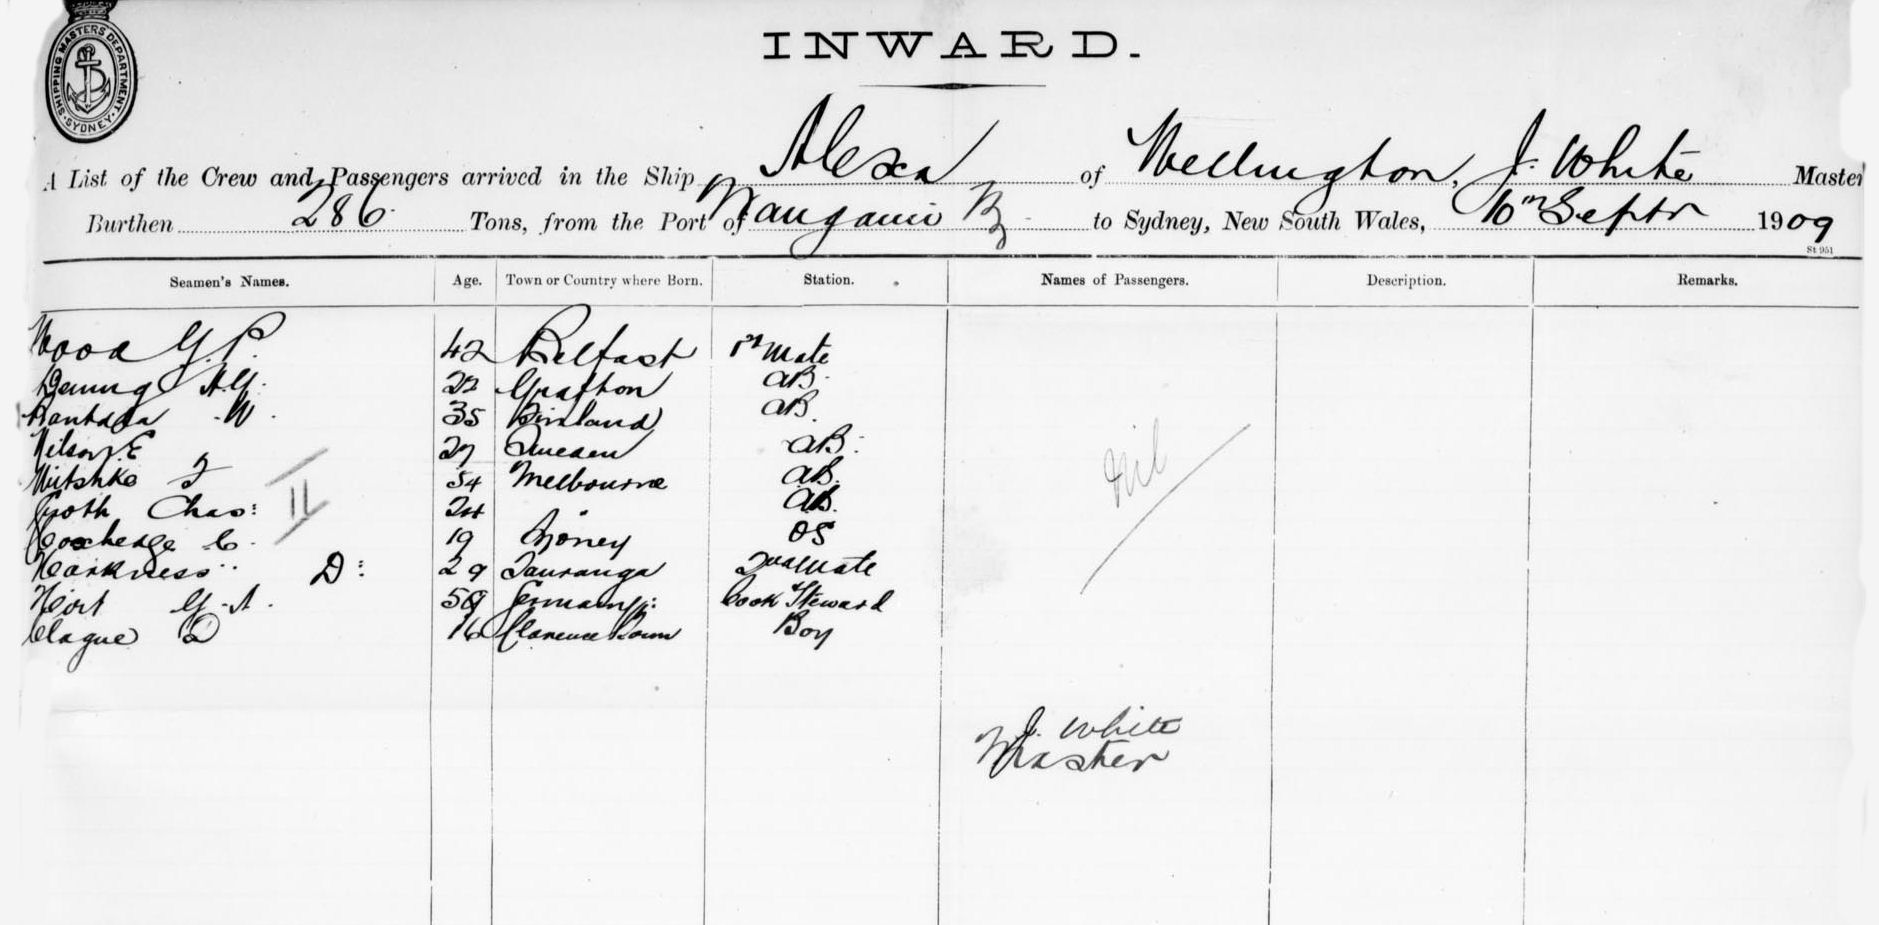 SHIPPING MASTERS DEPARTMENT · SYDNEY ·
INWARD.
A List of the Crew and Passengers arrived in the Ship Alexa of Wellington, J. White Master
Burthen 286 Tons, from the Port of to Sydney, New South Wales, 10th Septr 1909
St 951
Seamen's Names. Age. Town or Country where Born. Station. Names of Passengers. Description. Remarks.
Wood G. P. 42 Belfast 1st Mate
A.G. 22 Grafton AB.
W. 35 Finland AB.
Nilson E 27 Sweden AB.
Witshke F 54 Melbourne AB.
Groth Chas: 24 " AB.
C. 19 Sydney OS
Harkness D: 29 Tauranga 2nd Mate
Hort G. A. 59 Germany Cook & Steward
Clague D 16 Clarence Town Boy
11
Nil
J. White
Master